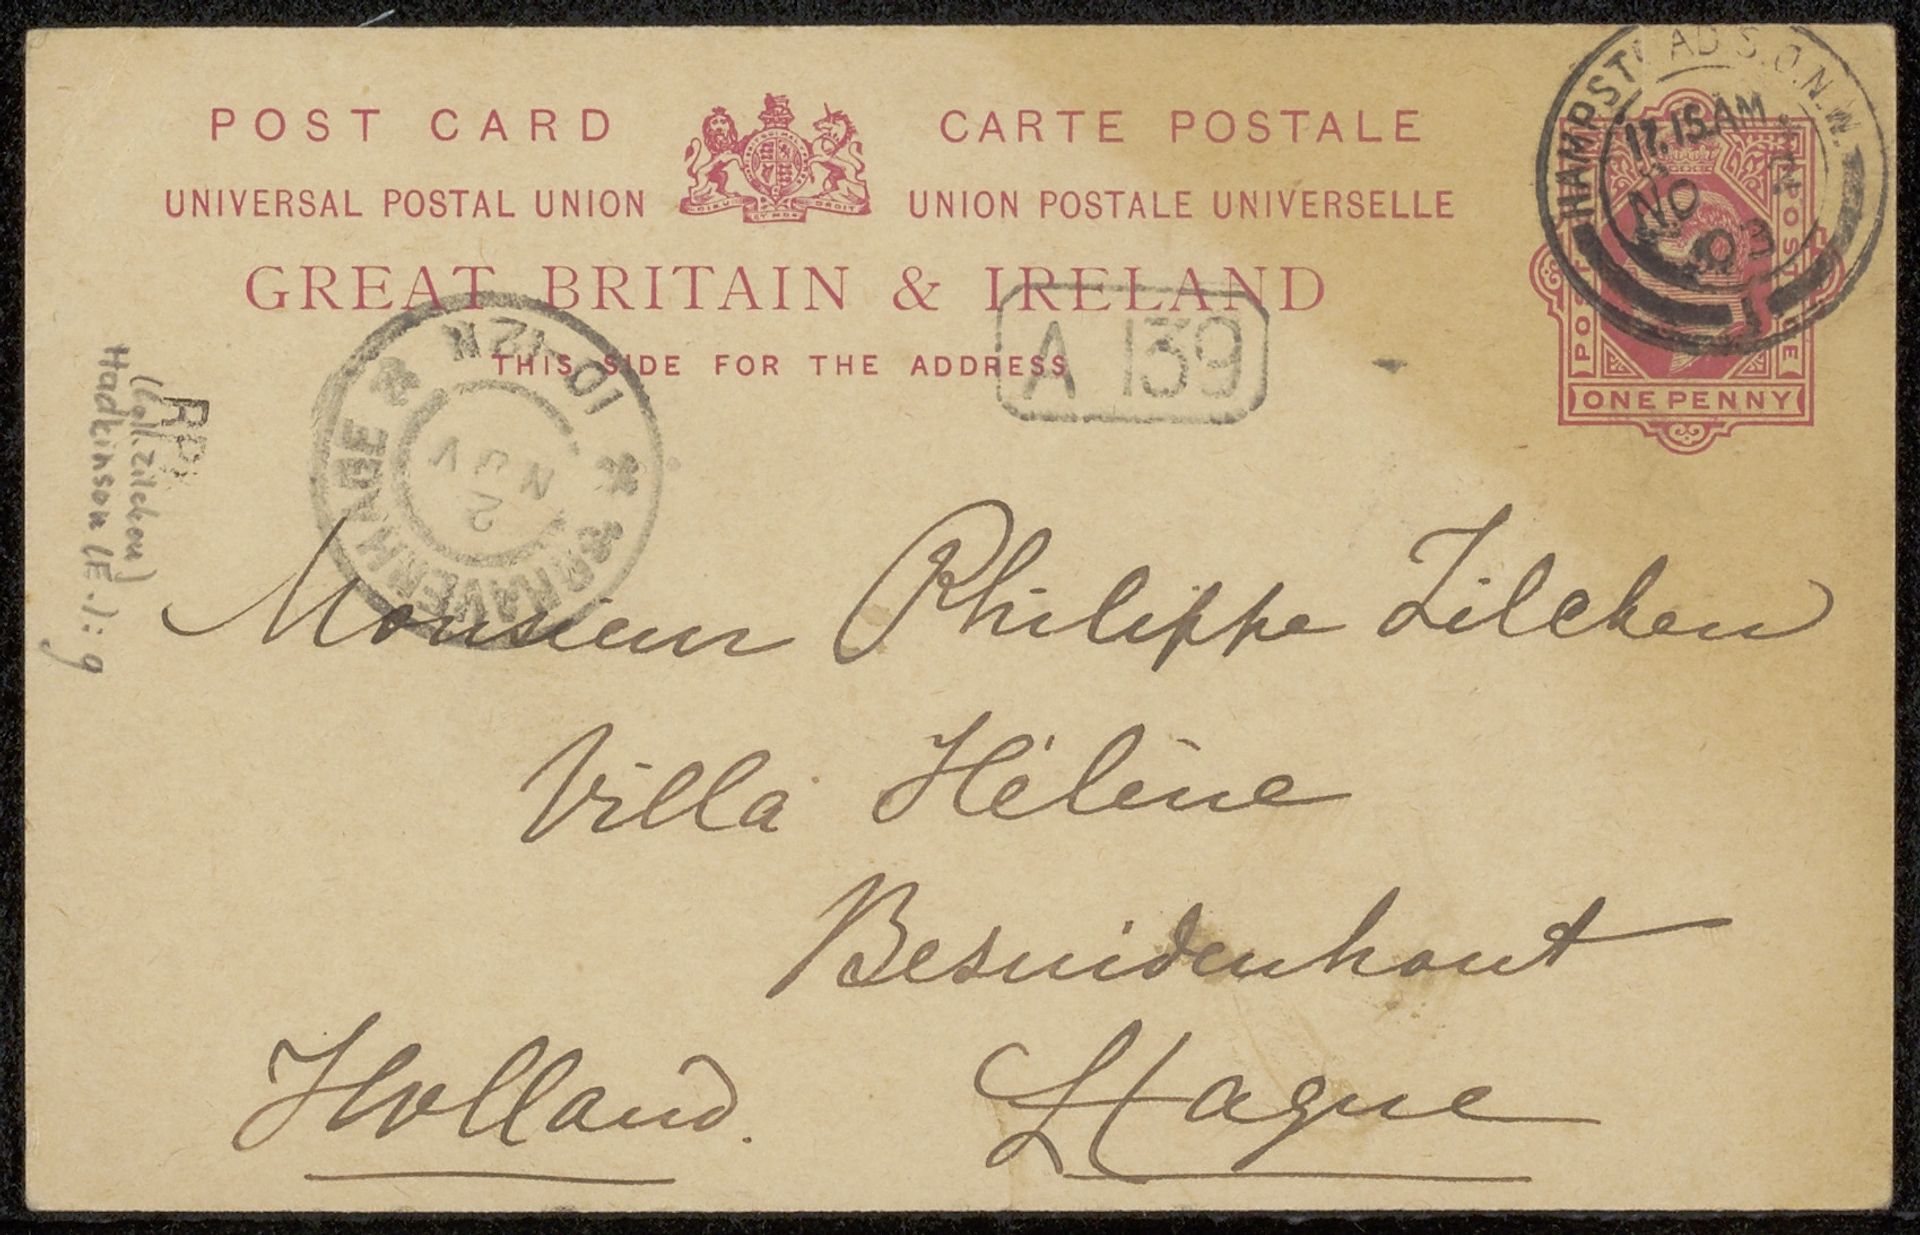 POST CARD CARTE POSTALE
UNIVERSAL POSTAL UNION UNION POSTALE UNIVERSELLE
GREAT BRITAIN & IRELAND
THIS SIDE FOR THE ADDRESS
DIEU ET MON DROIT
HAMPSTEAD S.O.N.W.
12.15 AM
NO
03
POSTAGE
ONE PENNY
'S GRAVENHAGE
10-12N
2 NOV
A 139
RPK
Hadkinson (E.): 9
(Coll. Zilcken)
Monsieur Philippe Zilcken
Villa Hélène
Besuidenhout
Holland. Hague